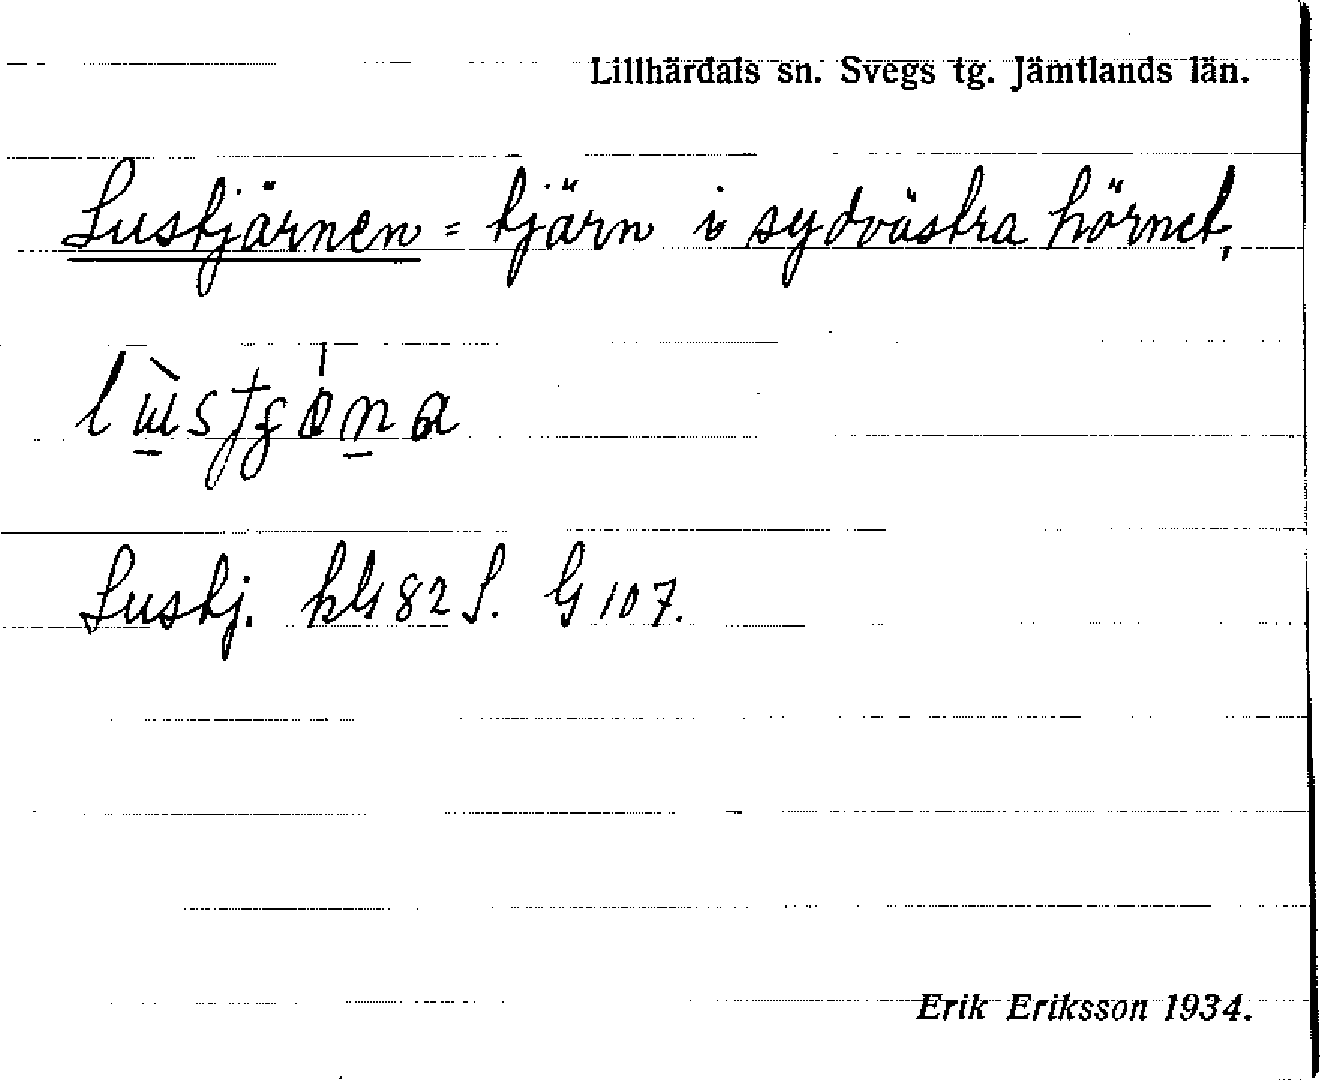 Lillhärdals sn. Svegs tg. Jämtlands län.
Lustjärnen = tjärn i sydvästra hörnet,
Lustj. kbl 82 S. G 107.
Erik Eriksson 1934.